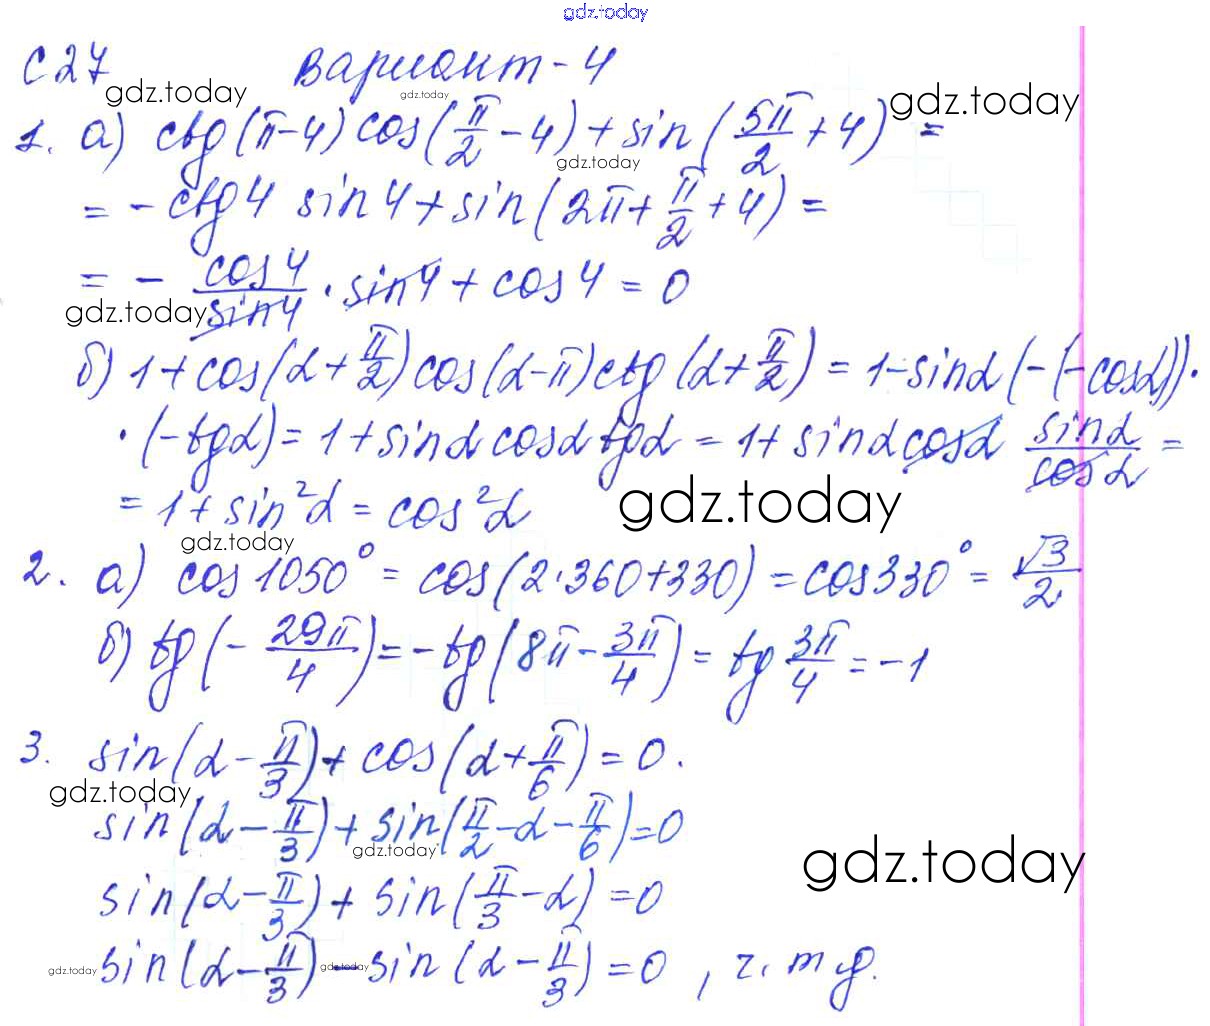 gdz.today
С 27 Вариант - 4
gdz.today gdz.today gdz.today
1. а) ctg(π-4) cos(π/2 - 4) + sin(5π/2 + 4) =
gdz.today
= - ctg4 sin4 + sin(2π + π/2 + 4) =
= - cos4/sin4 · sin4 + cos4 = 0
gdz.today
б) 1 + cos(α + π/2) cos(α-π) ctg(α + π/2) = 1 - sinα (-(-cosα)) ·
· (-tgα) = 1 + sinα cosα tgα = 1 + sinα cosα sinα/cosα =
= 1 + sin²α = cos²α
gdz.today
gdz.today
2. а) cos1050° = cos(2·360+330) = cos330° = √3/2
б) tg(- 29π/4) = - tg(8π - 3π/4) = tg 3π/4 = -1
3. sin(α - π/3) + cos(α + π/6) = 0.
gdz.today
sin(α - π/3) + sin(π/2 - α - π/6) = 0
gdz.today gdz.today
sin(α - π/3) + sin(π/3 - α) = 0
gdz.today gdz.today
sin(α - π/3) - sin(α - π/3) = 0, ч. т д.